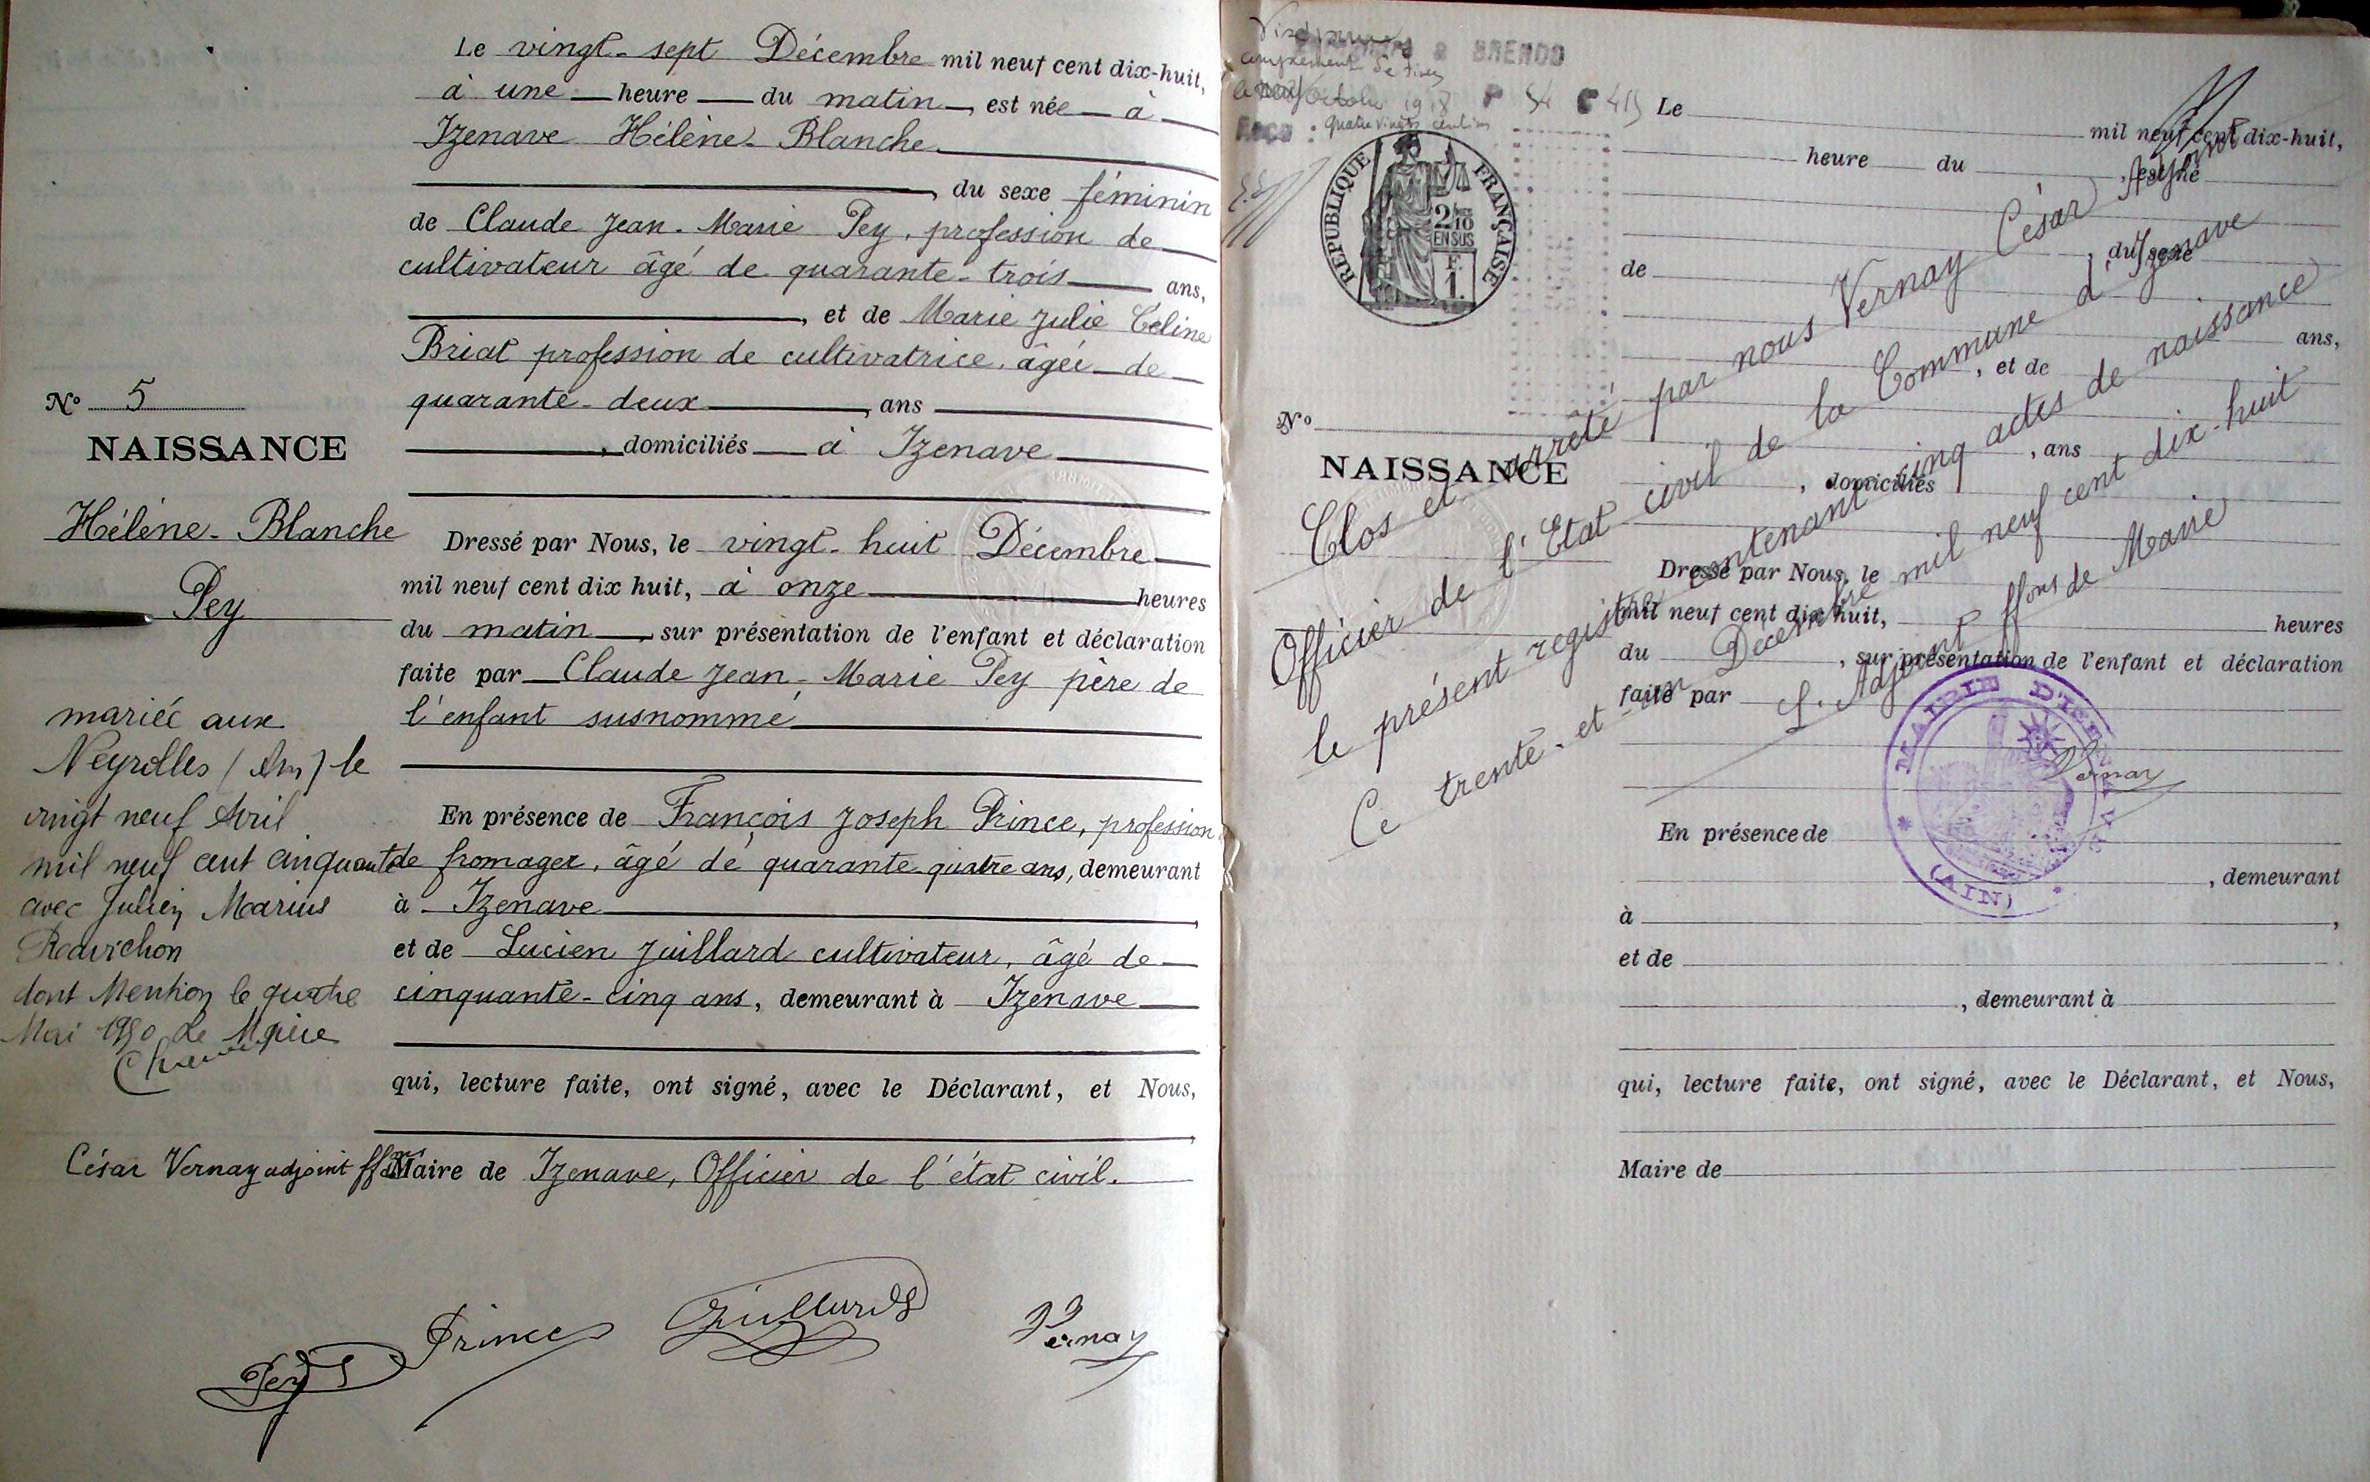 Le vingt-sept Décembre mil neuf cent dix-huit,
à une heure du matin, est née à
Izenave Hélène-Blanche
, du sexe féminin
de Claude Jean-Marie Pey, profession de
cultivateur âgé de quarante-trois ans,
, et de Marie Julie Céline
Briat profession de cultivatrice, âgée de
quarante-deux, ans
, domiciliés à Izenave
Dressé par Nous, le vingt-huit Décembre
mil neuf cent dix huit, à onze heures
du matin, sur présentation de l'enfant et déclaration
faite par Claude Jean-Marie Pey père de
l'enfant susnommé
En présence de François Joseph Prince, profession
de fromager, âgé de quarante-quatre ans, demeurant
à Izenave
et de Lucien Juillard cultivateur, âgé de
cinquante-cinq ans, demeurant à Izenave
qui, lecture faite, ont signé, avec le Déclarant, et Nous,
César Vernay adjoint ffons Maire de Izenave, Officier de l'état civil.
Pey Prince Juillard Vernay
No 5
NAISSANCE
Hélène-Blanche
Pey
mariée aux
Neyrolles (Ain) le
vingt neuf Avril
mil neuf cent cinquante
avec Julien Marius
Ravichon
dont Mention le quatre
Mai 1950 Le Maire
octobre 1918
quatre vingts centimes
RÉPUBLIQUE FRANÇAISE
2/10
EN SUS
F.
1.
No
NAISSANCE
Le
mil neuf cent dix-huit,
heure du , est né
, du sexe
de
ans,
, et de
, ans
, domiciliés
Dressé par Nous, le
mil neuf cent dix huit, heures
du , sur présentation de l'enfant et déclaration
faite par
En présence de
, demeurant
à ,
et de
, demeurant à
qui, lecture faite, ont signé, avec le Déclarant, et Nous,
Maire de
Clos et arrêté par nous Vernay César Adjoint
Officier de l'Etat civil de la Commune d'Izenave
le présent registre contenant cinq actes de naissance
Ce trente-et-un Décembre mil neuf cent dix-huit
L'Adjoint ffons de Maire
Vernay
MAIRIE D'IZENAVE
(AIN)